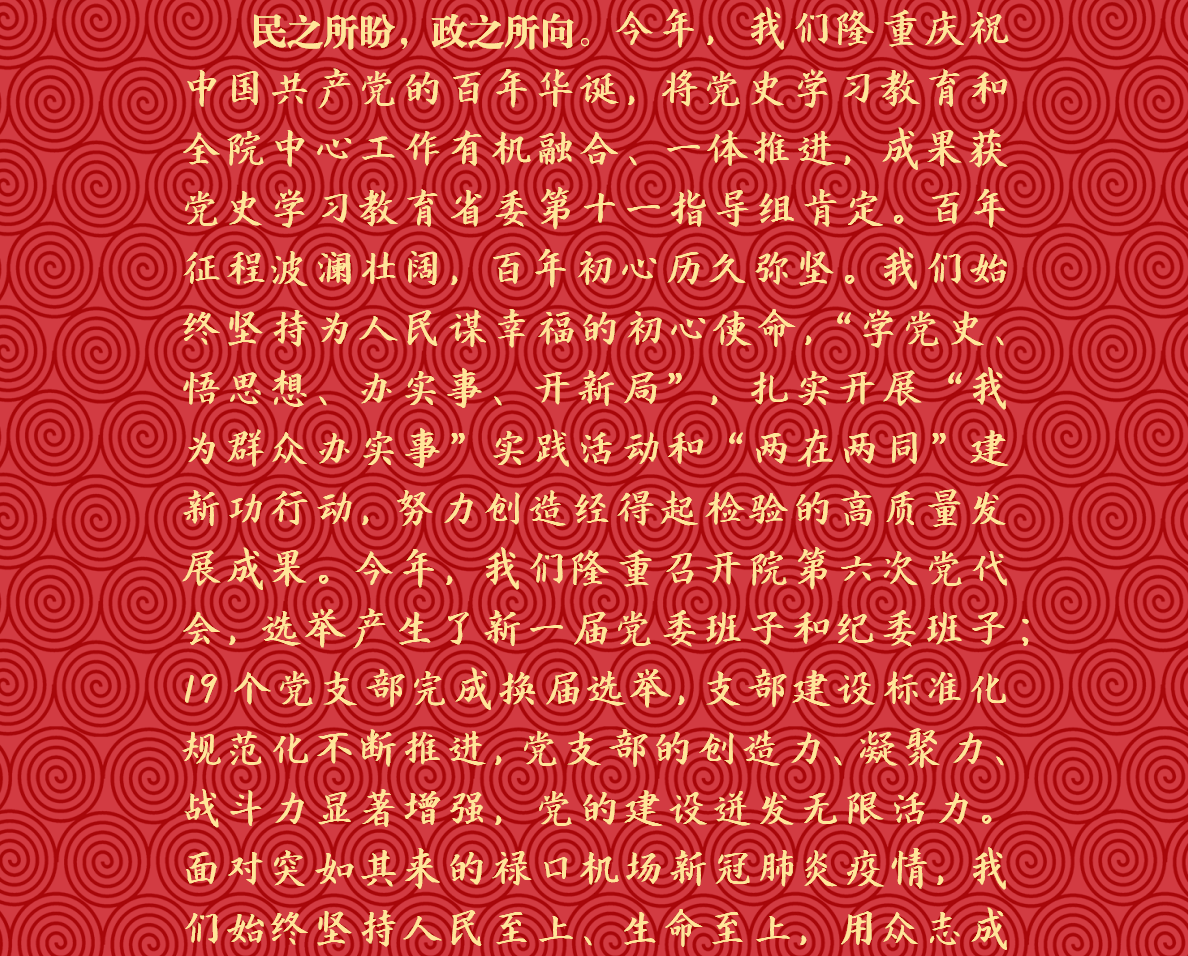 民之所盼，政之所向。今年，我们隆重庆祝
中国共产党的百年华诞，将党史学习教育和
全院中心工作有机融合、一体推进，成果获
党史学习教育省委第十一指导组肯定。百年
征程波澜壮阔，百年初心历久弥坚。我们始
终坚持为人民谋幸福的初心使命，“学党史、
悟思想、办实事、开新局”，扎实开展“我
为群众办实事”实践活动和“两在两同”建
新功行动，努力创造经得起检验的高质量发
展成果。今年，我们隆重召开院第六次党代
会，选举产生了新一届党委班子和纪委班子；
19个党支部完成换届选举，支部建设标准化
规范化不断推进，党支部的创造力、凝聚力、
战斗力显著增强，党的建设迸发无限活力。
面对突如其来的禄口机场新冠肺炎疫情，我
们始终坚持人民至上、生命至上，用众志成